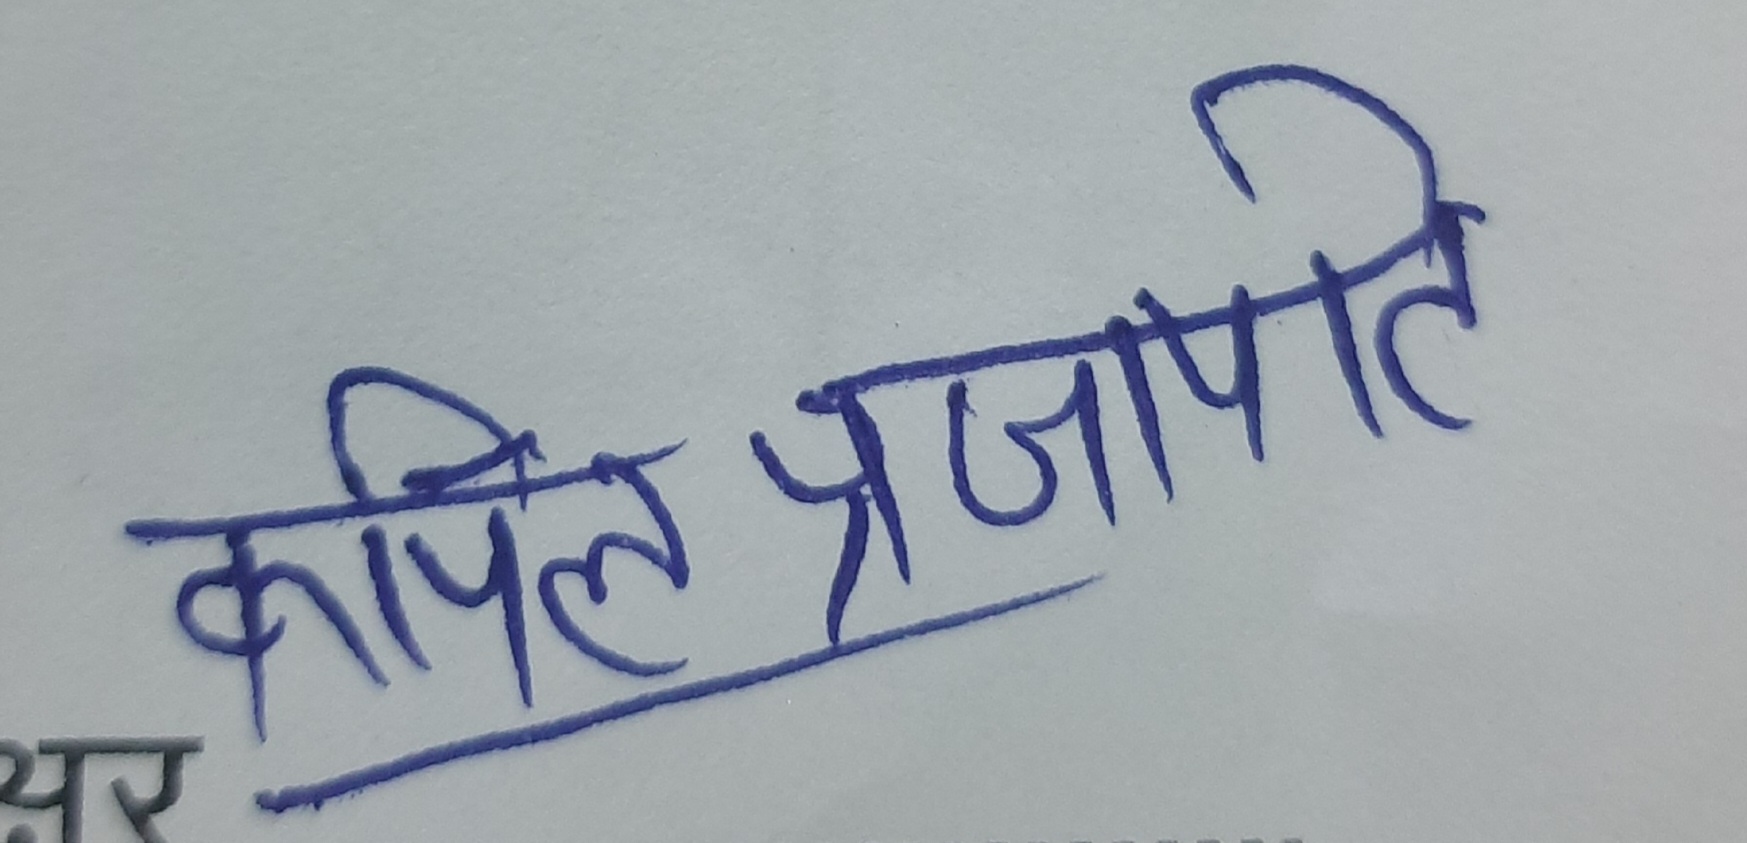 कपिल प्रजापति
क्षर